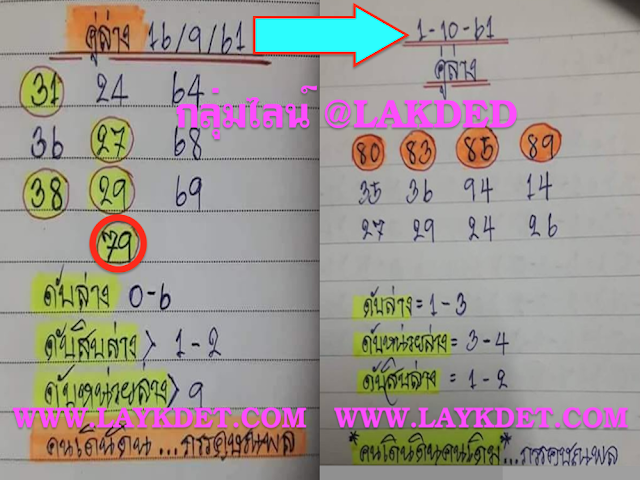 คู่ล่าง 16/9/61
31 24 64
36 27 68
38 29 69
79
ดับล่าง 0-6
ดับสิบล่าง > 1-2
ดับหน่วยล่าง > 9
WWW.LAYKDET.COM
คนเดินดิน...กรกฎษณพล
1-10-61
คู่ล่าง
กลุ่มไลน์ @LAKDED
80 83 85 89
35 36 94 14
27 29 24 26
ดับล่าง = 1-3
ดับหน่วยล่าง = 3-4
ดับสิบล่าง = 1-2
WWW.LAYKDET.COM
*คนเดินดินคนเดิม*...